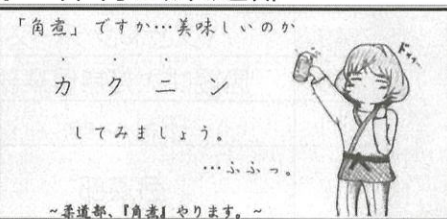 「角煮」ですか…美味しいのか
カクニン
してみましょう。
…ふふっ。
~柔道部、『角煮』やります。~